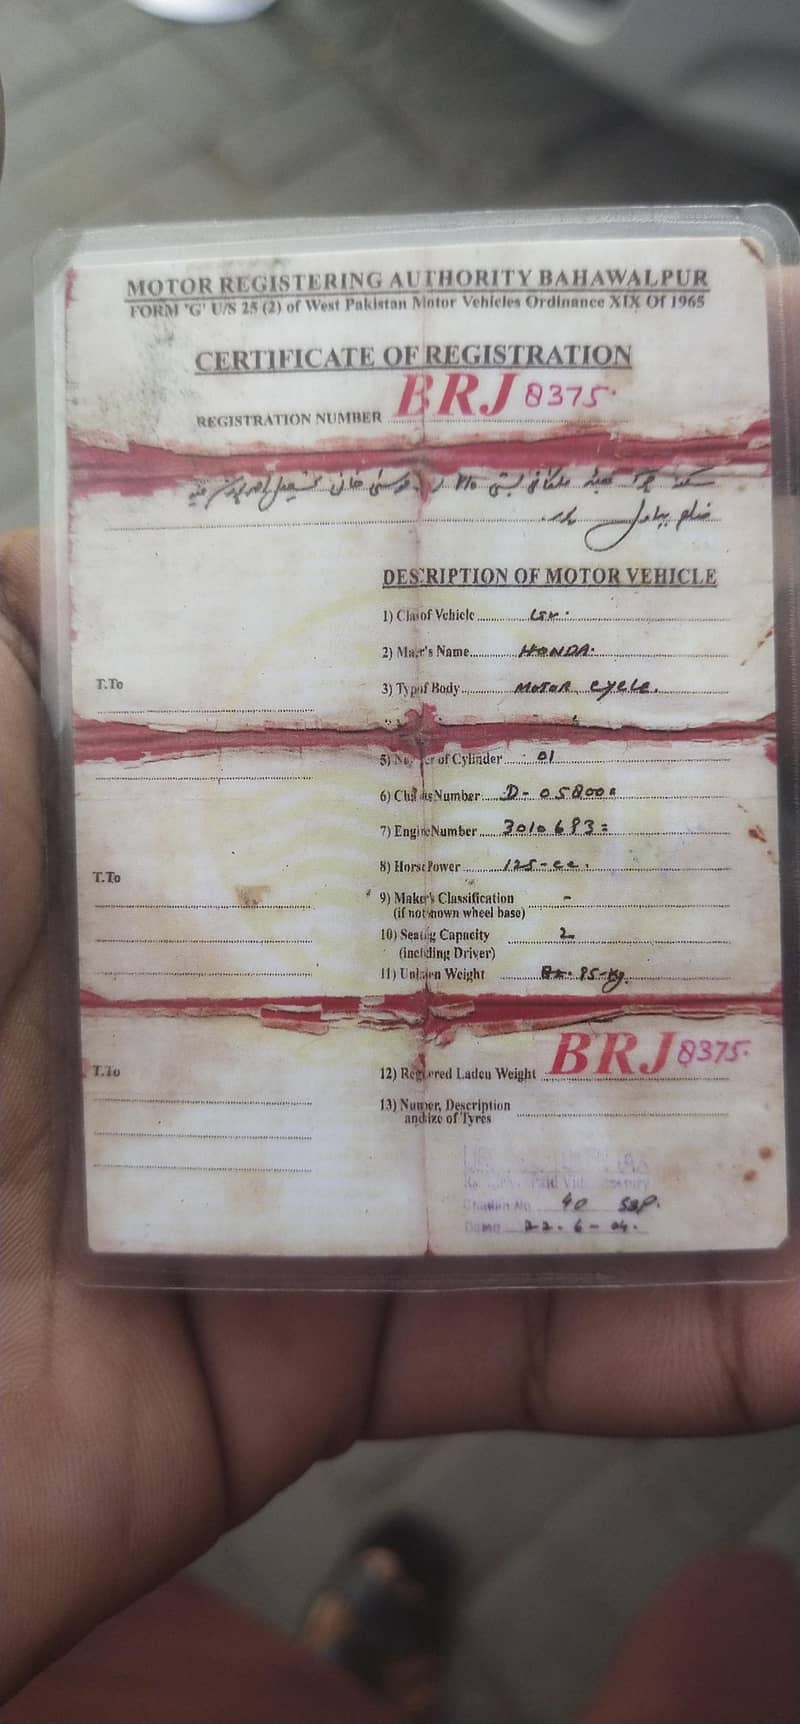 MOTOR REGISTERING AUTHORITY BAHAWALPUR
FORM 'G' U/S 25 (2) of West Pakistan Motor Vehicles Ordinance XIX Of 1965
CERTIFICATE OF REGISTRATION
REGISTRATION NUMBER BRJ 8375
ضلع بہاول پور
DESCRIPTION OF MOTOR VEHICLE
1) Clas of Vehicle
2) Ma r's Name HONDA
T.To
3) Typ of Body MOTOR CYCLE.
5) N er of Cylinder 01
6) Cha is Number D-05800
7) Engine Number 3010683
8) Horse Power 125-cc.
T.To
9) Maker's Classification -
(if not nown wheel base)
10) Seating Capacity 2
(including Driver)
11) Unla en Weight 95-kg.
BRJ 8375
T.To
12) Reg ered Laden Weight
13) Num er, Description
and ize of Tyres
Challan No 40 SBP.
22-6-04.